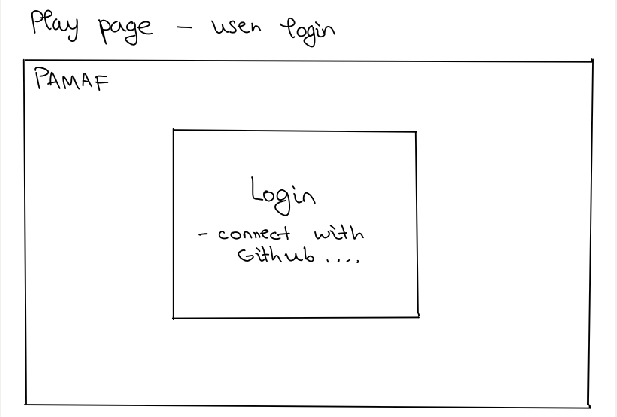 Play page - user login
PAMAF
Login
- connect with
Github ....